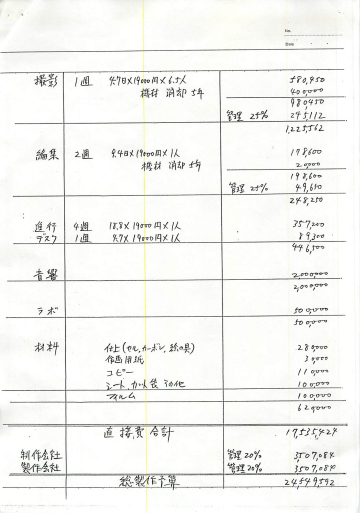 No.
Date
撮影 1週 4.7日×19000円×6.5人 580,450
機材 消却 5年 400,000
980,450
管理 25% 245,112
1,225,562
編集 2週 9.4日×19000円×1人 178,600
機材 消却 5年 20,000
198,600
管理 25% 49,650
248,250
進行 4週 18.8×19000円×1人 357,200
デスク 1週 4.7×19000円×1人 89,300
446,500
音響 2,000,000
2,000,000
ラボ 500,000
500,000
材料 仕上(セル、カーボン、絵の具) 280,000
作画用紙 30,000
コピー 110,000
シート、カット袋 その他 100,000
フィルム 100,000
620,000
直接費合計 17,535,424
制作会社 管理20% 3,507,084
製作会社 管理20% 3,507,084
総製作予算 24,549,592